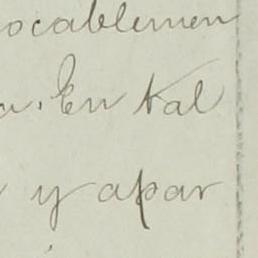 ocablemen
a. En tal
y apar